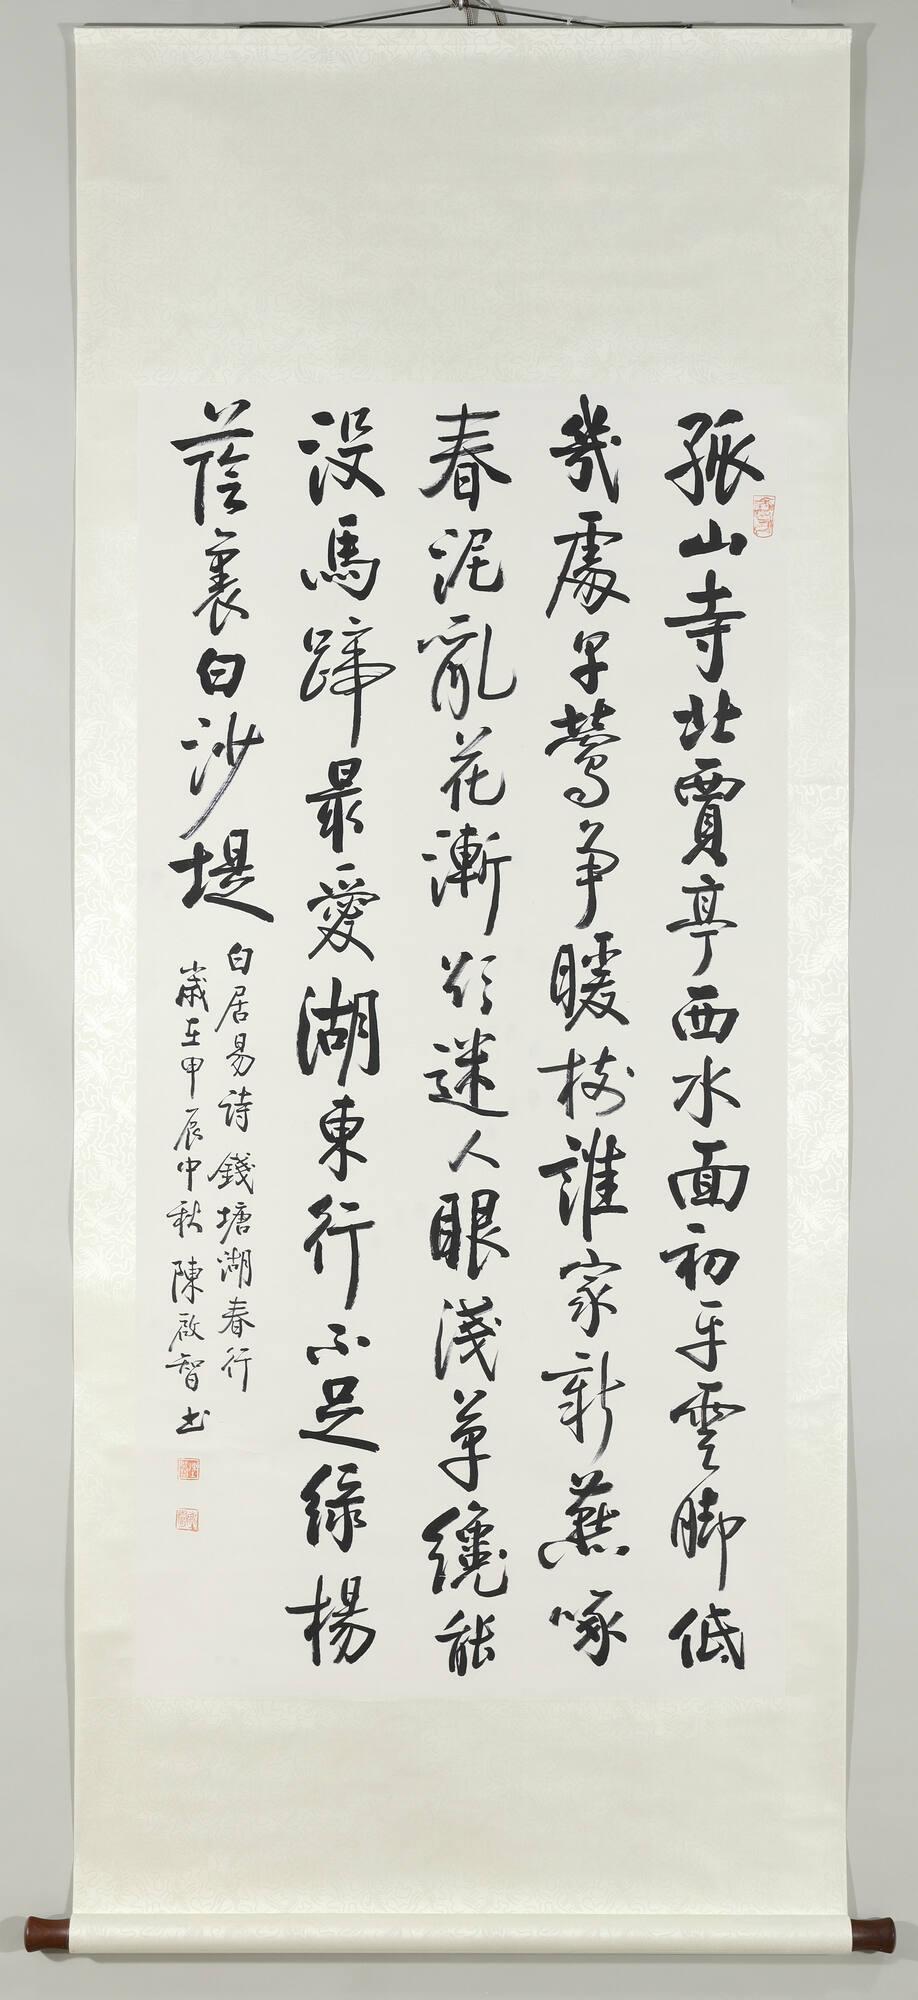 孤山寺北賈亭西水面初平雲脚低
幾處早鶯爭暖枝誰家新燕啄
春泥亂花漸欲迷人眼淺草纔能
沒馬蹄最愛湖東行不足綠楊
蔭裏白沙堤
白居易詩錢塘湖春行
歲在甲辰中秋陳啟智書